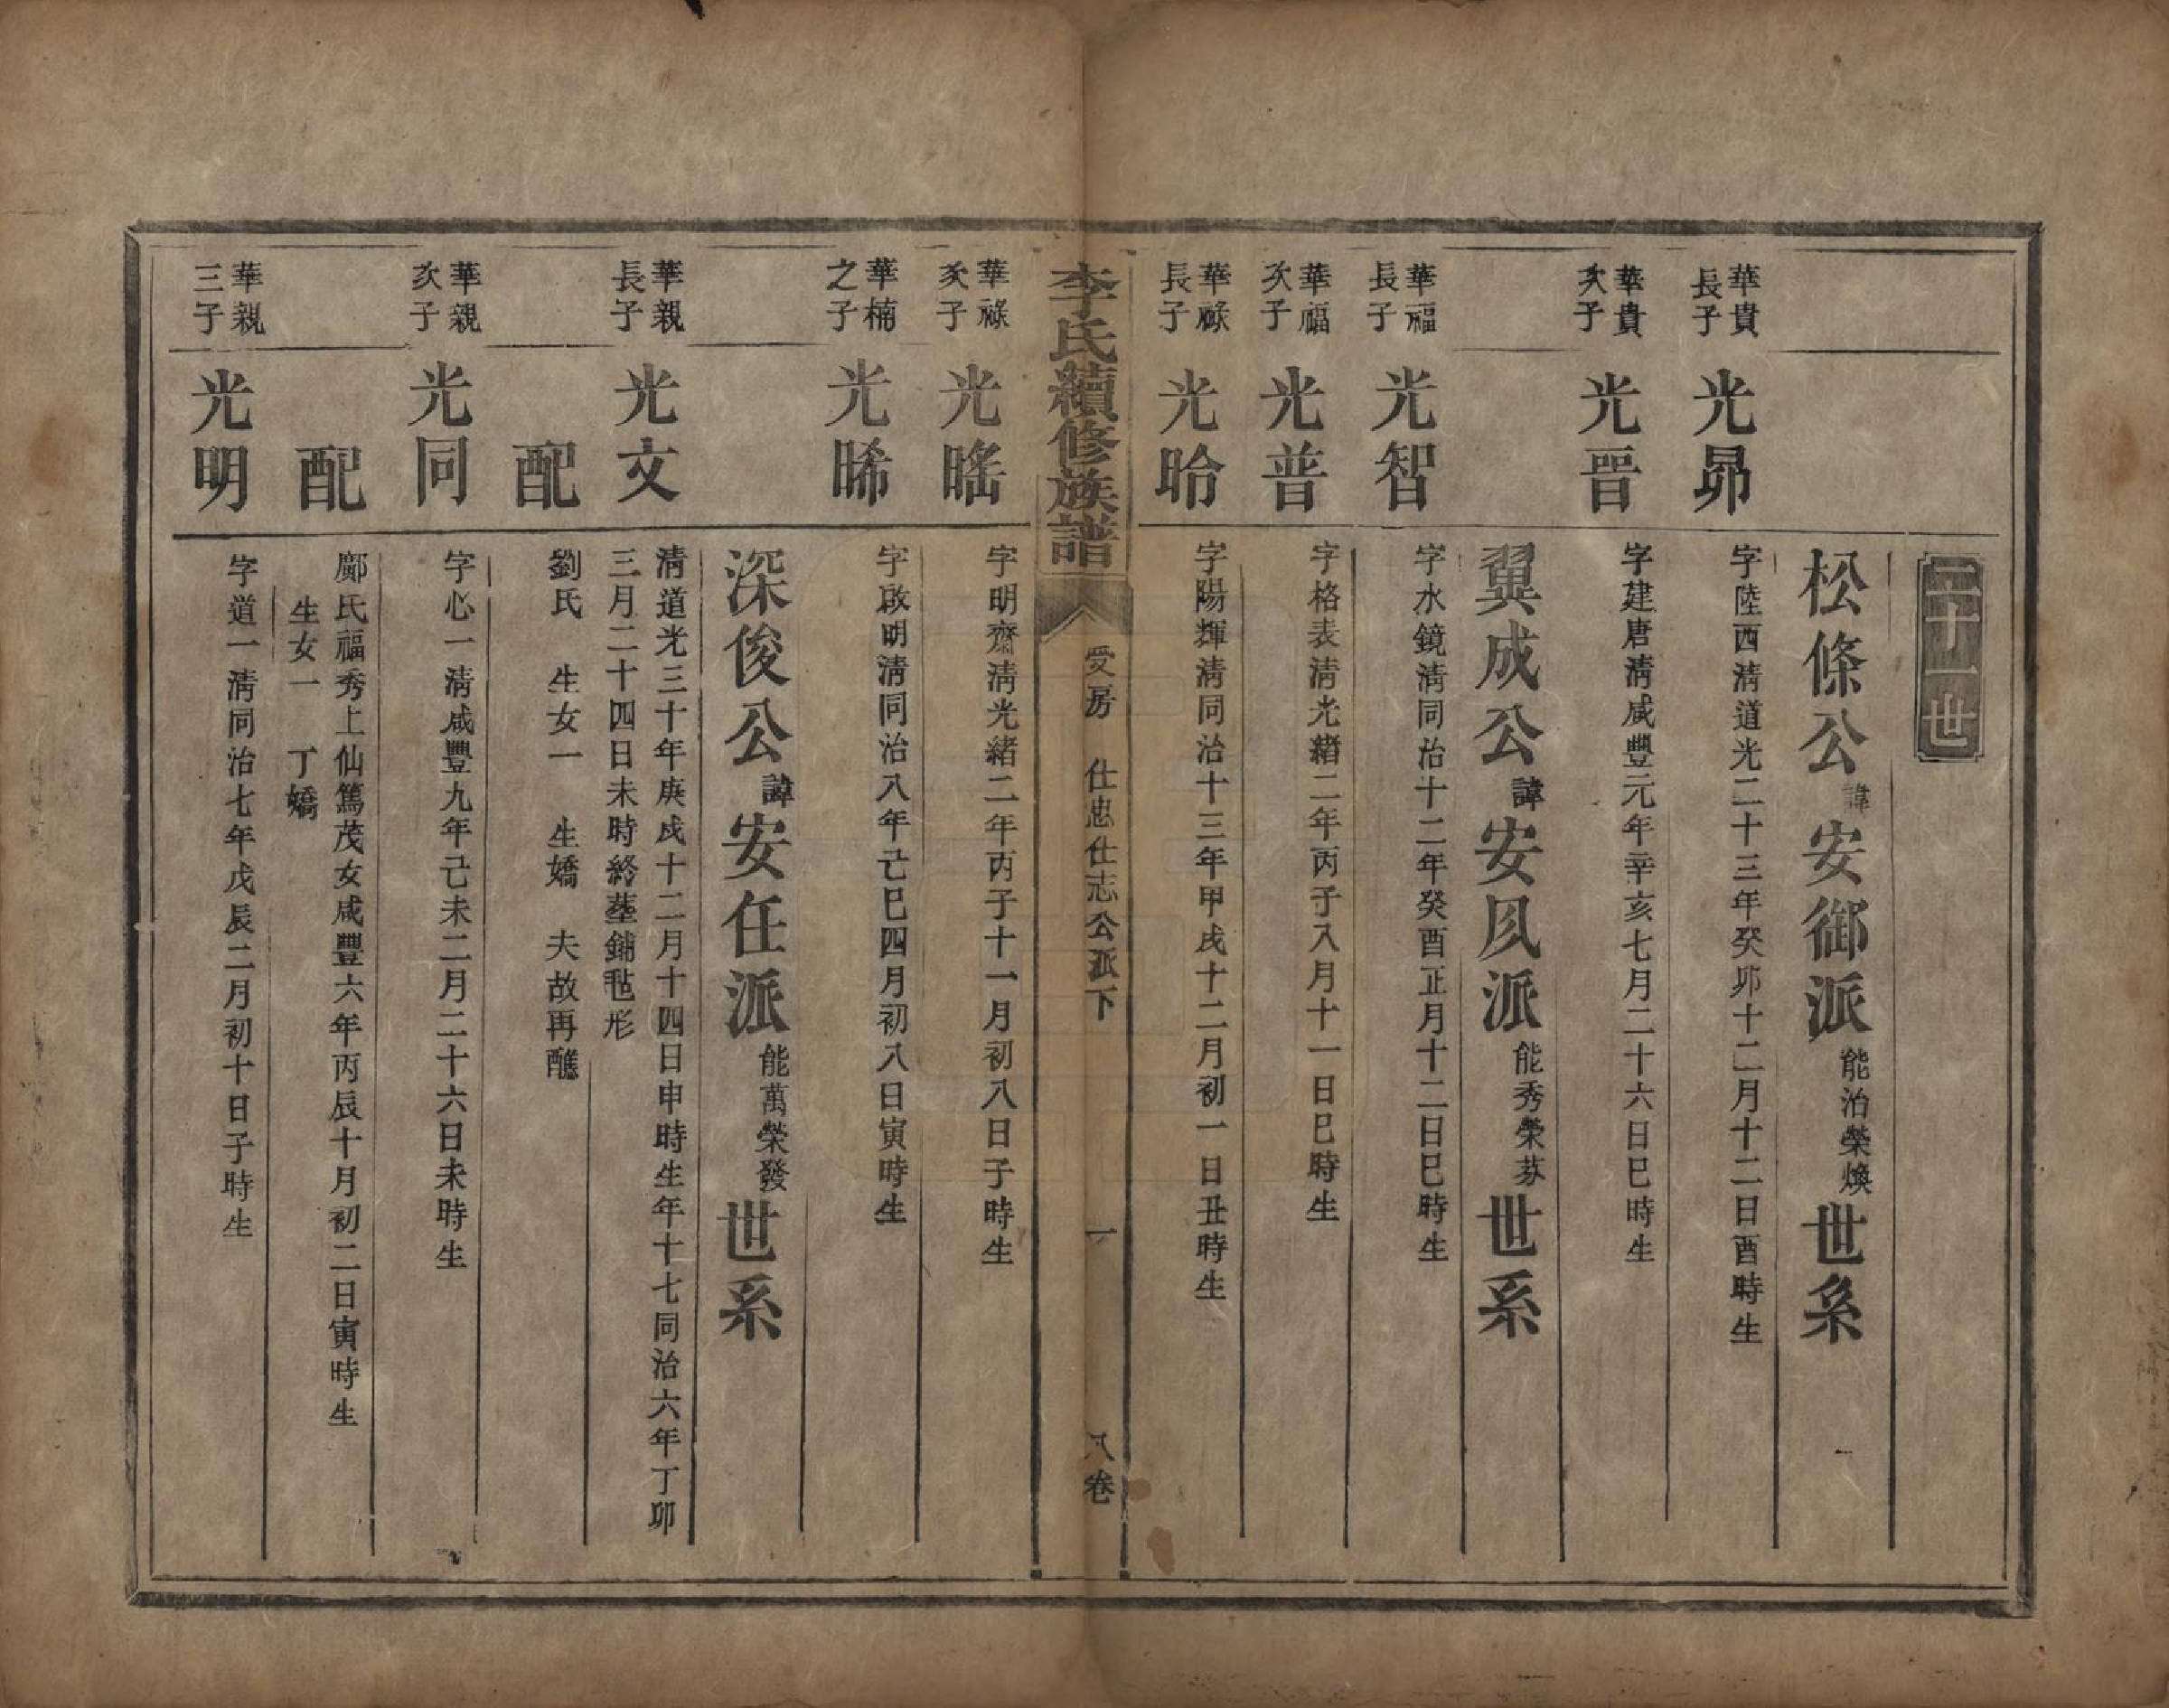 二十一世
松條公諱安御派能治榮煥世系
華貴長子
光昴
字陸西清道光二十三年癸卯十二月十二日酉時生
華貴次子
光晉
字建唐清咸豐元年辛亥七月二十六日巳時生
翼成公諱安夙派能秀榮菾世系
華福長子
光智
字水鏡清同治十二年癸酉正月十二日巳時生
華福次子
光普
字格表清光緒二年丙子八月十一日巳時生
華祿長子
光昤
字陽輝清同治十三年甲戌十二月初一日丑時生
李氏續修族譜 受房 仕忠仕志公派下 一 八卷
華祿次子
光暚
字明齋清光緒二年丙子十一月初八日子時生
華楠之子
光晞
字啟明清同治八年己巳四月初八日寅時生
深俊公諱安任派能萬榮發世系
華親長子
光文
清道光三十年庚戌十二月十四日申時生年十七同治六年丁卯
三月二十四日未時終塟鋪毡形
配
劉氏 生女一 生嬌 夫故再醮
華親次子
光同
字心一清咸豐九年己未二月二十六日未時生
配
鄺氏福秀上仙篤茂女咸豐六年丙辰十月初二日寅時生
生女一 丁嬌
華親三子
光明
字道一清同治七年戊辰二月初十日子時生